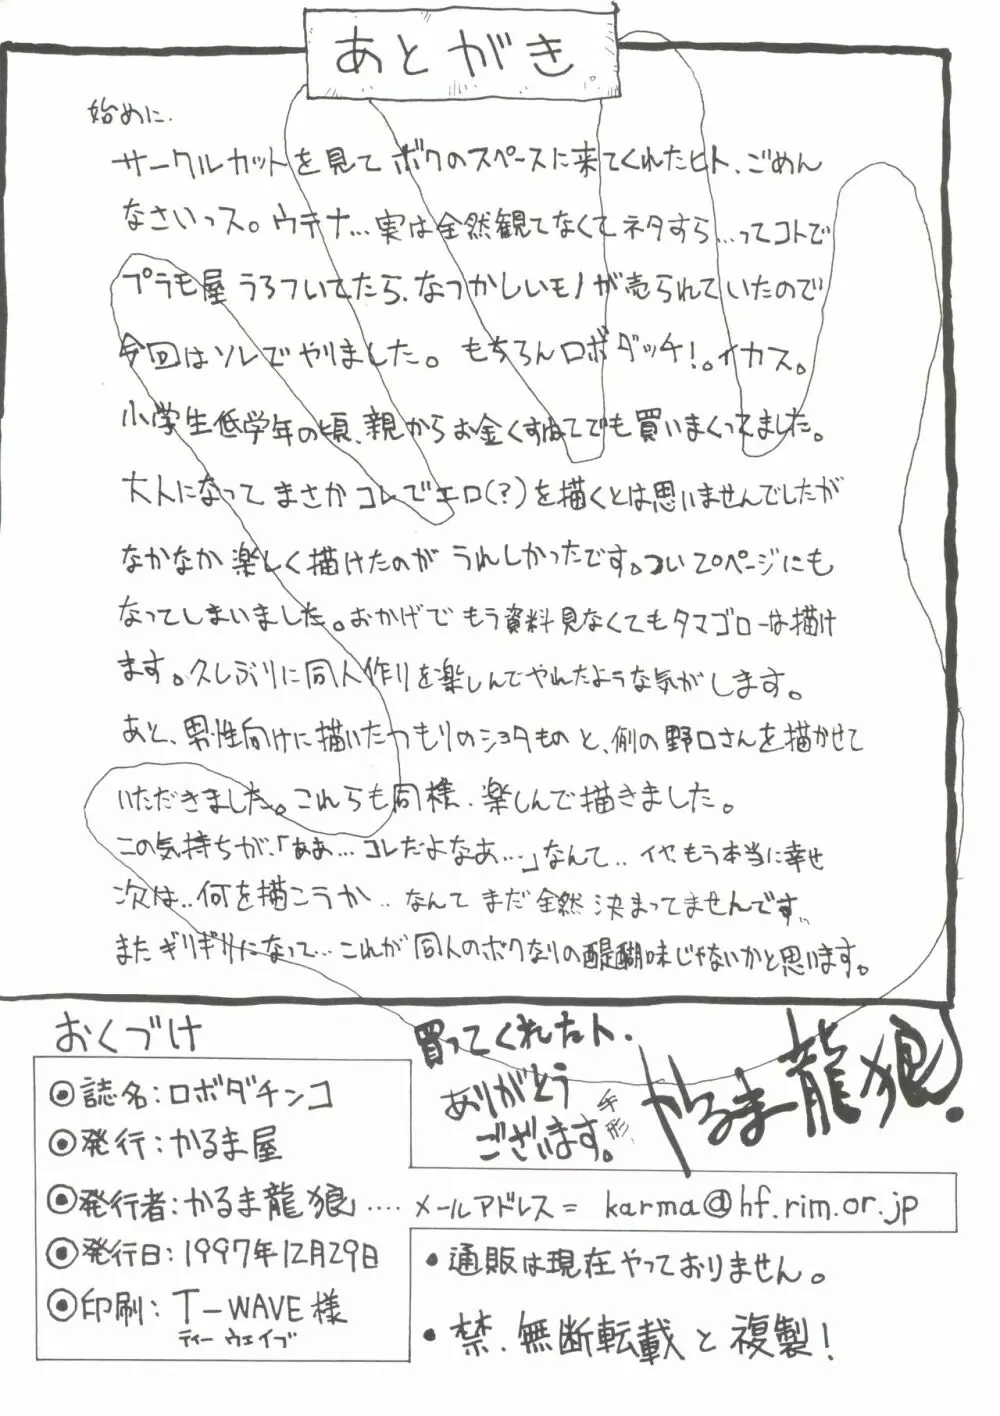 あとがき
始めに.
サークルカットを見てボクのスペースに来てくれたヒト、ごめん
なさいっス。ウテナ…実は全然観てなくてネタすら…ってコトで
プラモ屋うろついてたら、なつかしいモノが売られていたので
今回はソレでやりました。もちろんロボダッチ!。イカス。
小学生低学年の頃、親からお金くすねてでも買いまくってました。
大人になってまさかコレでエロ(?)を描くとは思いませんでしたが
なかなか楽しく描けたのがうれしかったです。つい20ページにも
なってしまいました。おかげでもう資料見なくてもタマゴローは描け
ます。久しぶりに同人作りを楽しんでやれたような気がします。
あと、男性向けに描いたつもりのショタものと、例の野口さんを描かせて
いただきました。これらも同様、楽しんで描きました。
この気持ちが、「ああ…コレだよなあ…」なんて‥イヤもう本当に幸せ
次は‥何を描こうか‥なんてまだ全然決まってませんです‥
またギリギリになって…これが同人のボクなりの醍醐味じゃないかと思います。
おくづけ
◉誌名:ロボダチンコ
◉発行:かるま屋
◉発行者:かるま龍狼‥‥メールアドレス= karma@hf.rim.or.jp
◉発行日:1997年12月29日
◉印刷:T-WAVE様
ティーウェイブ
買ってくれたト.
ありがとう
ございます。
手形
かるま龍狼!
・通販は現在やっておりません。
・禁.無断転載と複製!